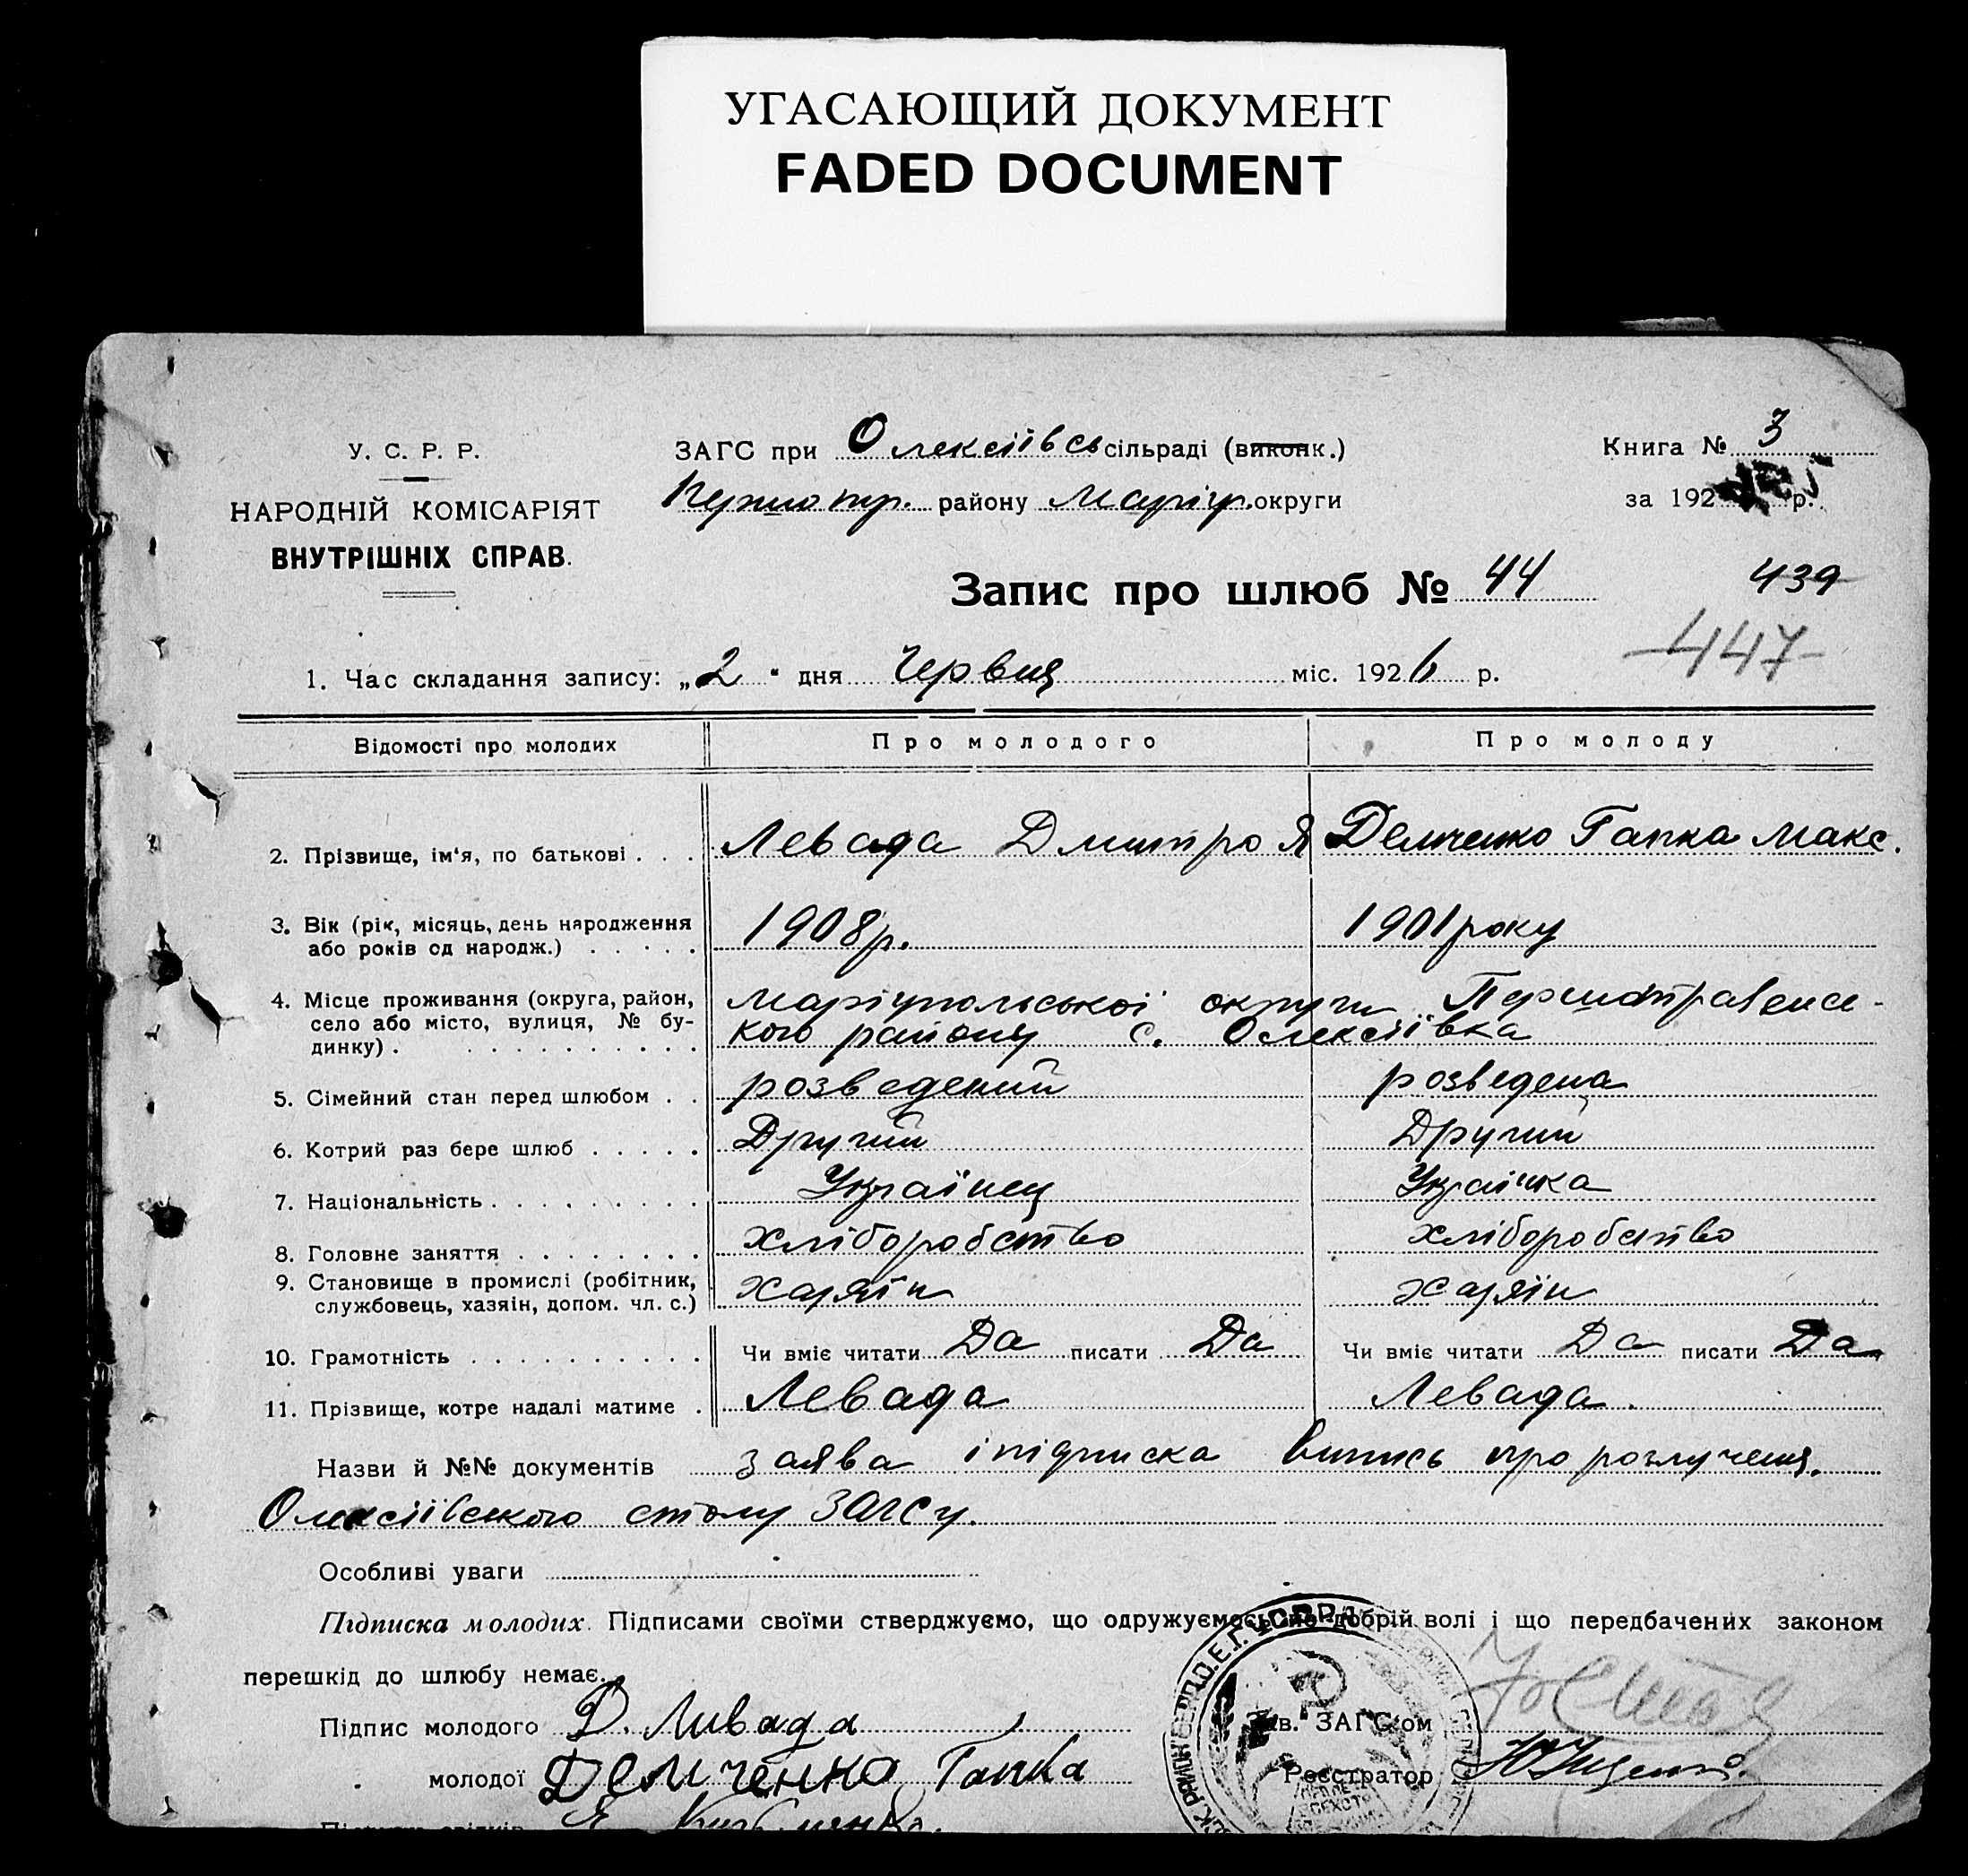 УГАСАЮЩИЙ ДОКУМЕНТ
FADED DOCUMENT
У. С. Р. Р.
НАРОДНІЙ КОМІСАРІЯТ
ВНУТРІШНІХ СПРАВ.
ЗАГС при Олексіївсь сільраді (виконк.)
Першотр. району Маріуп. округи
Книга № 3
за 192 р.
Запис про шлюб № 44
439
447
1. Час складання запису: „2“ дня Червня міс. 1926 р.
Відомості про молодих Про молодого Про молоду
2. Прізвище, ім'я, по батькові . . . Левада Дмитро Я Демченко Гапка Макс.
3. Вік (рік, місяць, день народження 1908р. 1901 року
або років од народж.) . . . . .
4. Місце проживання (округа, район, Маріупольської округи Першотравенсь-
село або місто, вулиця, № бу- кого району с. Олексіївка
динку) . . . . . . . . . . .
5. Сімейний стан перед шлюбом . . розведений розведена
6. Котрий раз бере шлюб . . . . . Другий Другий
7. Національність . . . . . . . . . Українец Українка
8. Головне заняття . . . . . . . . хліборобство хліборобство
9. Становище в промислі (робітник, хазяїн хазяїн
службовець, хазяін, допом. чл. с.)
10. Грамотність . . . . . . . . . . Чи вміє читати Да писати Да Чи вміє читати Да писати Да
11. Прізвище, котре надалі матиме . Левада Левада.
Назви й №№ документів заява і підписка Випись про розлучення.
Олексіївського столу ЗАГСу.
Особливі уваги
Підписка молодих. Підписами своїми стверджуємо, що одружуємось по добрій волі і що передбачених законом
перешкід до шлюбу немає.
Підпис молодого Д. Ливада
Зав. ЗАГС'ом
молодої Демченко Гапка
Реєстратор